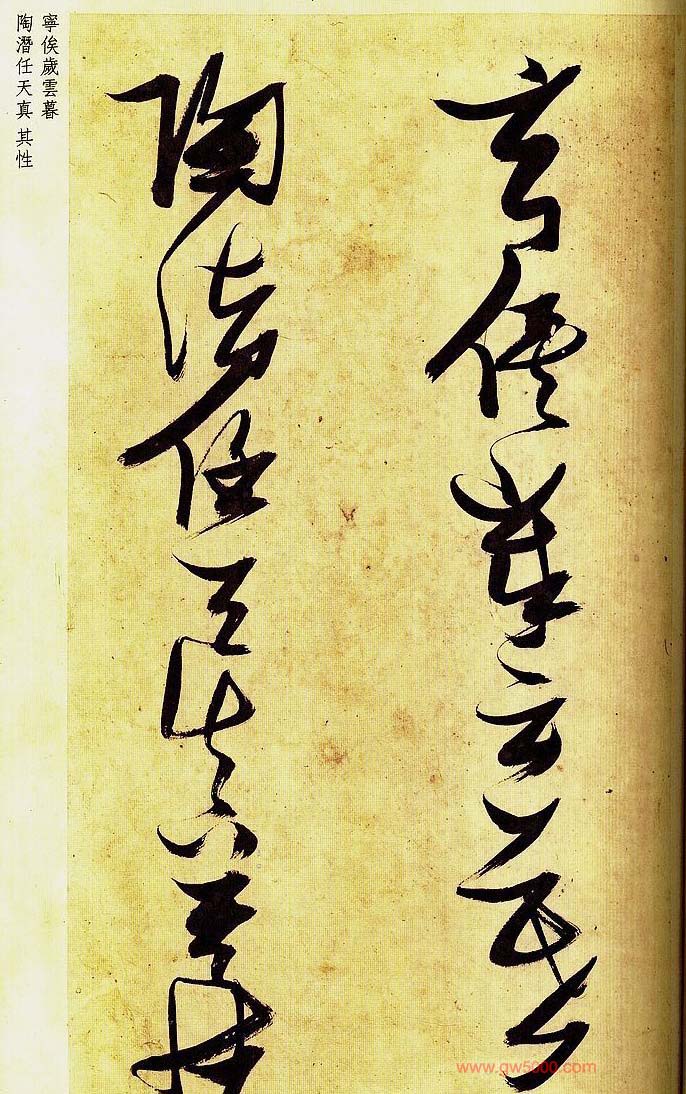 寧俟歲雲暮
陶潛任天真 其性
寧俟歲云暮
陶潛任天真其性
www.gw5000.com